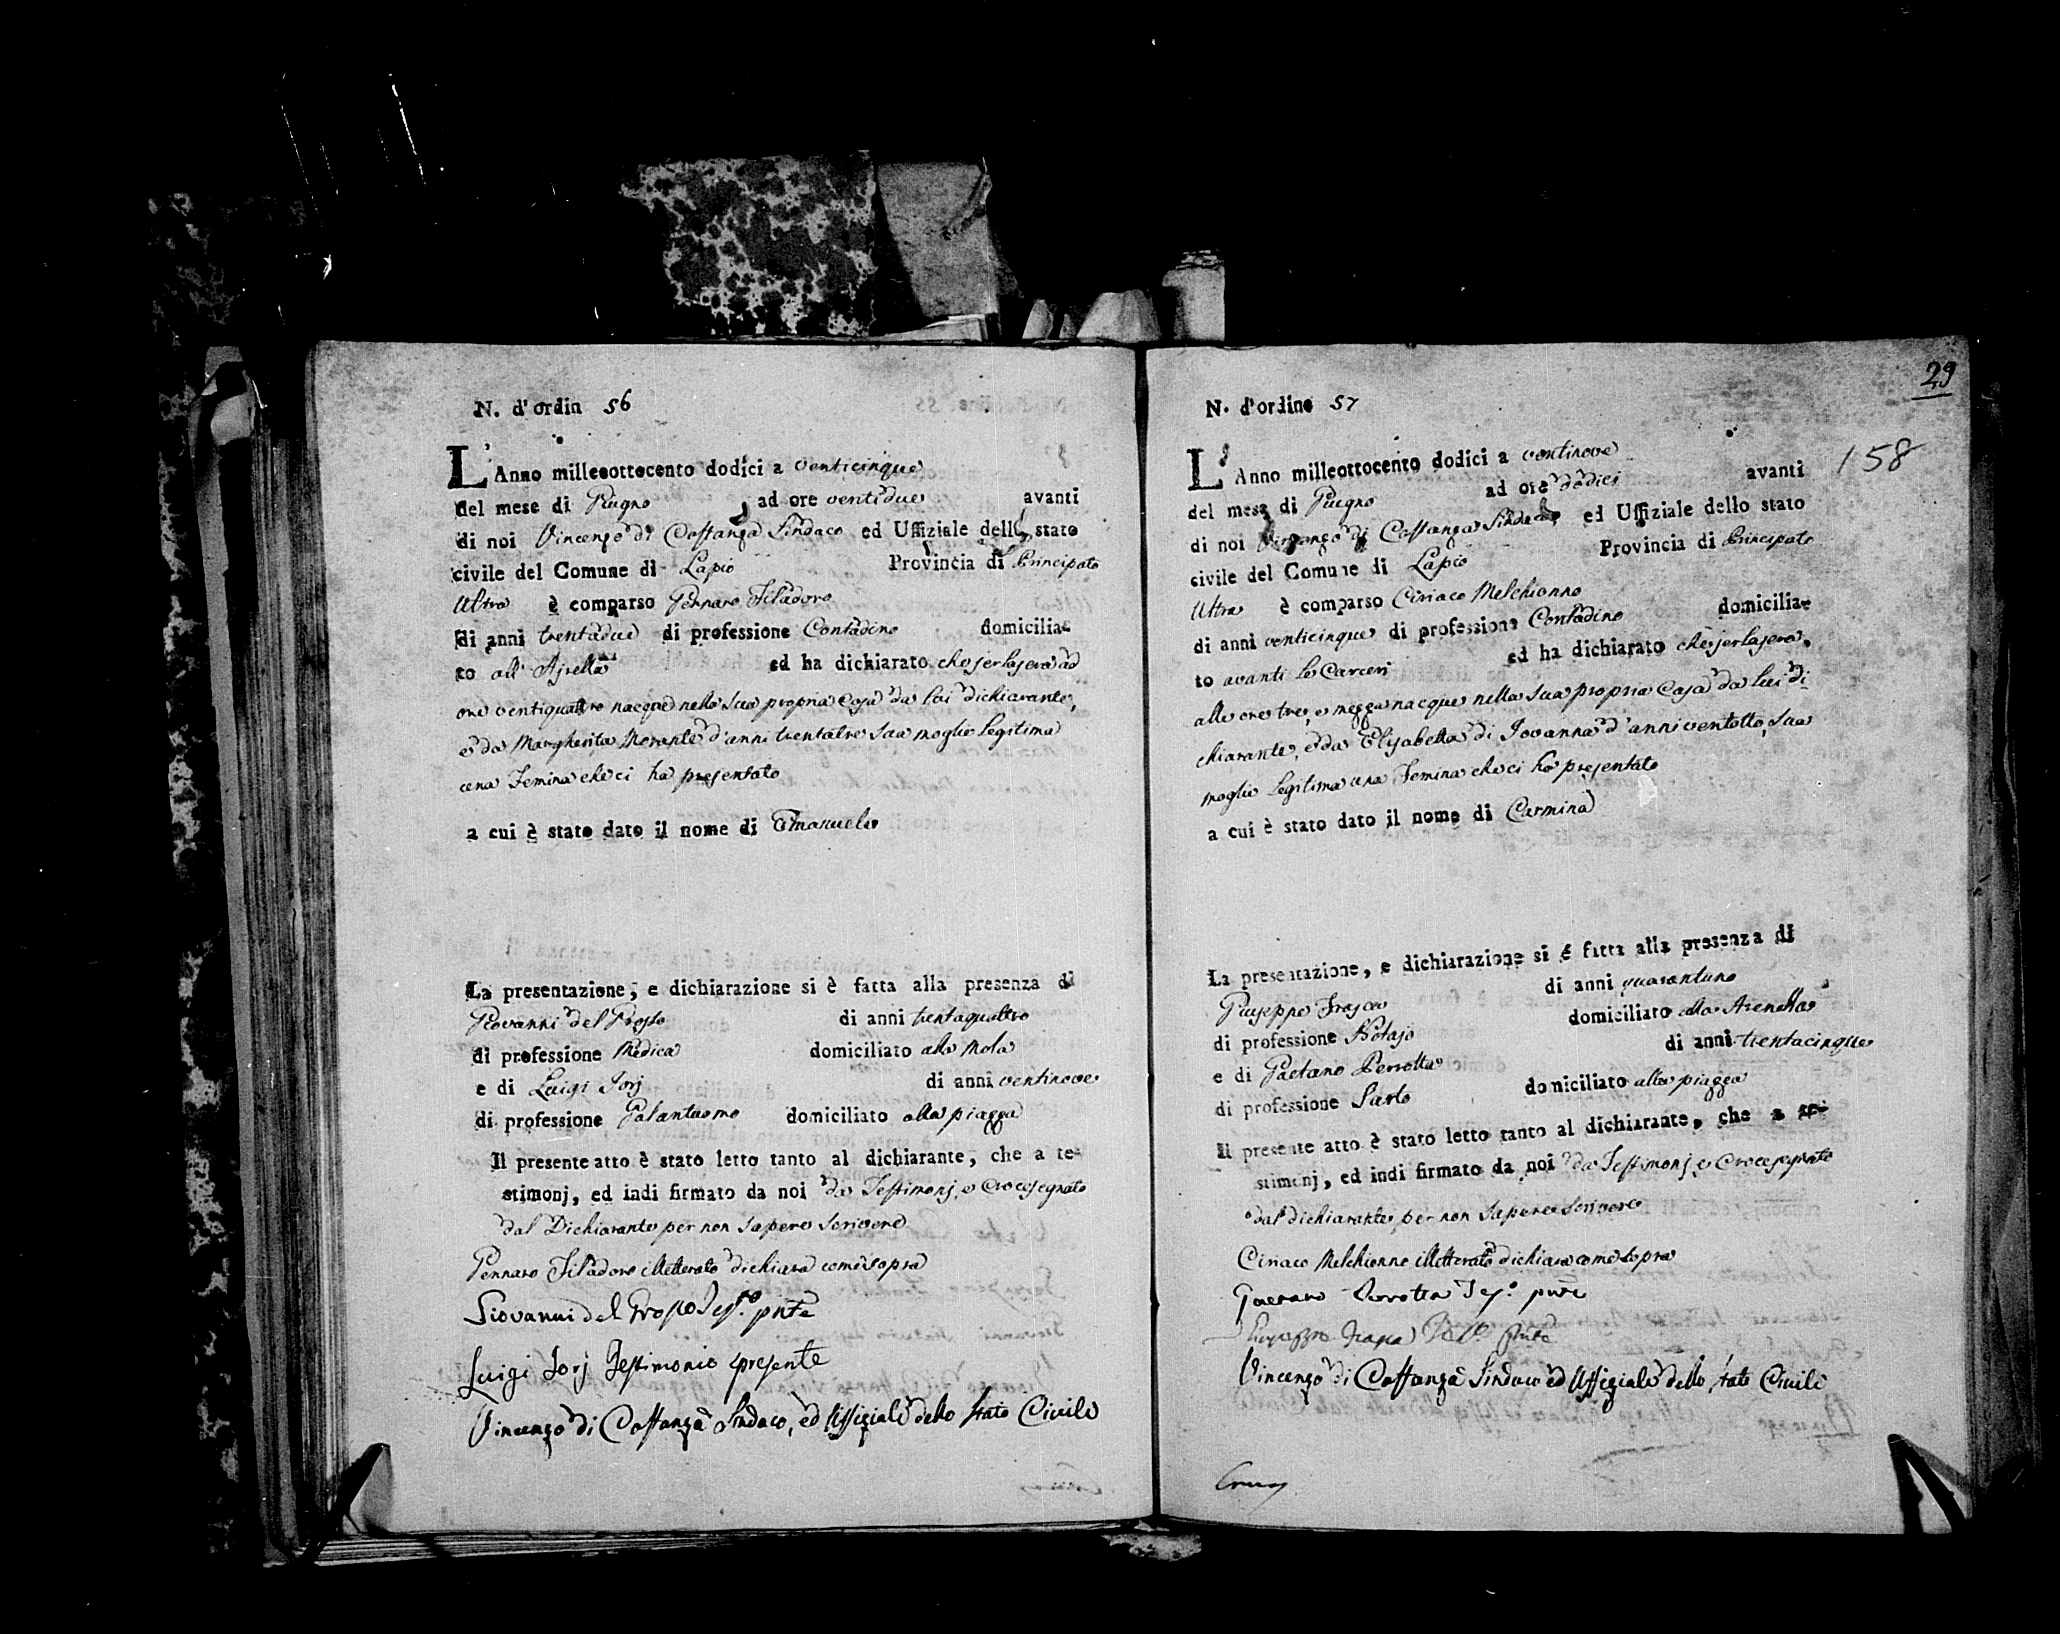 N. d'ordin 56
L'Anno milleottocento dodici a venticinque
del mese di Giugno ad ore ventidue avanti
di noi Vincenzo di Costanza Sindaco ed Uffiziale dello stato
civile del Comune di Lapio Provincia di Principato
Ultra è comparso Gennaro Filadoro
di anni trentadue di professione Contadino domicilia-
to all' Ajrella ed ha dichiarato che jer la sera ad
ore ventiquattro nacque nella sua propria Casa da lui dichiarante,
e da Margherita Morante d'anni trentatre sua moglie legitima
una Femina che ci ha presentato
a cui è stato dato il nome di Emanuela
La presentazione, e dichiarazione si è fatta alla presenza di
Giovanni del Grosso di anni trentaquattro
di professione Medica domiciliato alla Mola
e di Luigi Jorj di anni ventinove
di professione Galantuomo domiciliato alla piazza
Il presente atto è stato letto tanto al dichiarante, che a te-
stimonj, ed indi firmato da noi da Testimonj, e Crocesegnato
dal Dichiarante per non sapere scrivere
Gennaro Filadoro illetterato dichiara come sopra
Giovanni del Grosso Test.o pnte
Luigi Jorj Testimonio presente
Vincenzo di Costanza Sindaco, ed Uffiziale dello stato Civile
29
158
N. d'ordine 57
L'Anno milleottocento dodici a ventinove
del mese di Giugno ad ore dodici avanti
di noi Vincenzo di Costanza Sindaco ed Uffiziale dello stato
civile del Comune di Lapio Provincia di Principato
Ultra è comparso Ciriaco Melchionno
di anni venticinque di professione Contadino domicilia-
to avanti le Carceri ed ha dichiarato che jer la sera
alle ore tre, e mezza nacque nella sua propria Casa da lui di-
chiarante, e da Elisabetta di Jovanna d'anni ventotto, sua
moglie legitima una Femina che ci ha presentato
a cui è stato dato il nome di Carmina
La presentazione, e dichiarazione si è fatta alla presenza di
Giuseppe Frasca di anni quarantuno
di professione Notajo domiciliato alla Arenella
e di Gaetano Perrotta di anni trentacinque
di professione Sarto domiciliato alla piazza
Il presente atto è stato letto tanto al dichiarante, che a te-
stimonj, ed indi firmato da noi da Testimonj, e Crocesegnato
dal dichiarante per non sapere scrivere
Ciriaco Melchionno illetterato dichiara come sopra
Gaetano Perrotta Tes.o pnte
Giuseppe Frasca Tes.o pnte
Vincenzo di Costanza Sindaco ed Uffiziale dello stato Civile